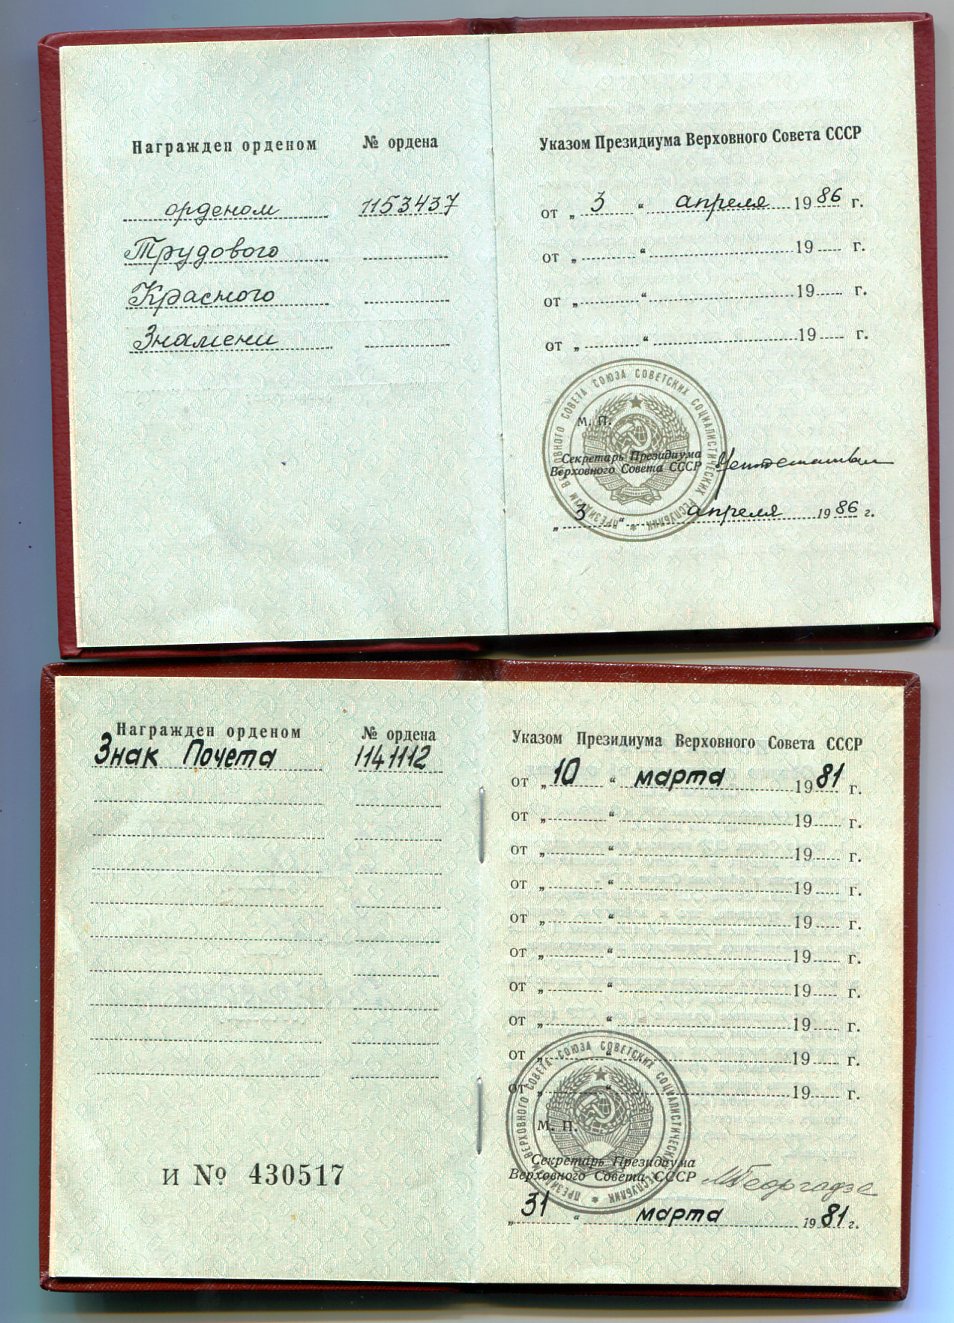 Награжден орденом № ордена
орденом 1153437
Трудового
Красного
Знамени
Указом Президиума Верховного Совета СССР
от „ 3 “ апреля 1986 г.
от „ “ 19 г.
от „ “ 19 г.
от „ “ 19 г.
ПРЕЗИДИУМ ВЕРХОВНОГО СОВЕТА СОЮЗА СОВЕТСКИХ СОЦИАЛИСТИЧЕСКИХ РЕСПУБЛИК
М. П.
Секретарь Президиума
Верховного Совета СССР
„ 3 “ апреля 1986 г.
Награжден орденом № ордена
Знак Почета 1141112
и № 430517
Указом Президиума Верховного Совета СССР
от „ 10 “ марта 1981 г.
от „ “ 19 г.
от „ “ 19 г.
от „ “ 19 г.
от „ “ 19 г.
от „ “ 19 г.
от „ “ 19 г.
от „ “ 19 г.
от „ “ 19 г.
от „ “ 19 г.
ПРЕЗИДИУМ ВЕРХОВНОГО СОВЕТА СОЮЗА СОВЕТСКИХ СОЦИАЛИСТИЧЕСКИХ РЕСПУБЛИК
М. П.
Секретарь Президиума
Верховного Совета СССР МГеоргадзе
„ 31 “ марта 1981 г.